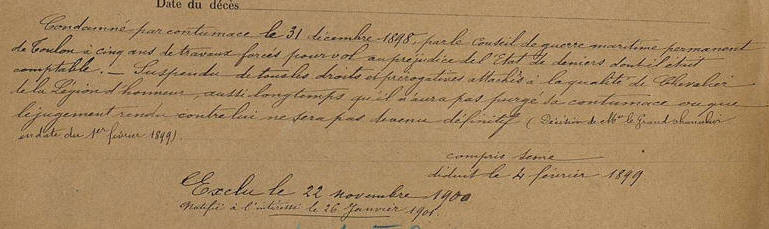 Date du décès
Condamné par contumace le 31 décembre 1898, par le Conseil de guerre maritime permanent
de Toulon à cinq ans de travaux forcés pour vol au préjudice de l'Etat de deniers dont il était
comptable. — Suspendu de tous les droits et prérogatives attachés à la qualité de Chevalier
de la Légion d'honneur, aussi longtemps qu'il n'aura pas purgé sa contumace ou que
le jugement rendu contre lui ne sera pas devenu définitif (Décision de Mr le Grand Chancelier
en date du 1er février 1899).
compris
déduit le 4 février 1899
Exclu le 22 novembre 1900
Notifié à l'intéressé le 26 Janvier 1901.